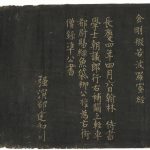 金剛般若波羅蜜經
長慶四年四月六日翰林侍書
學士朝議郎行右補闕上輕車
都尉賜緋魚袋柳公權為右街
僧錄準公書
強演邵建和刻